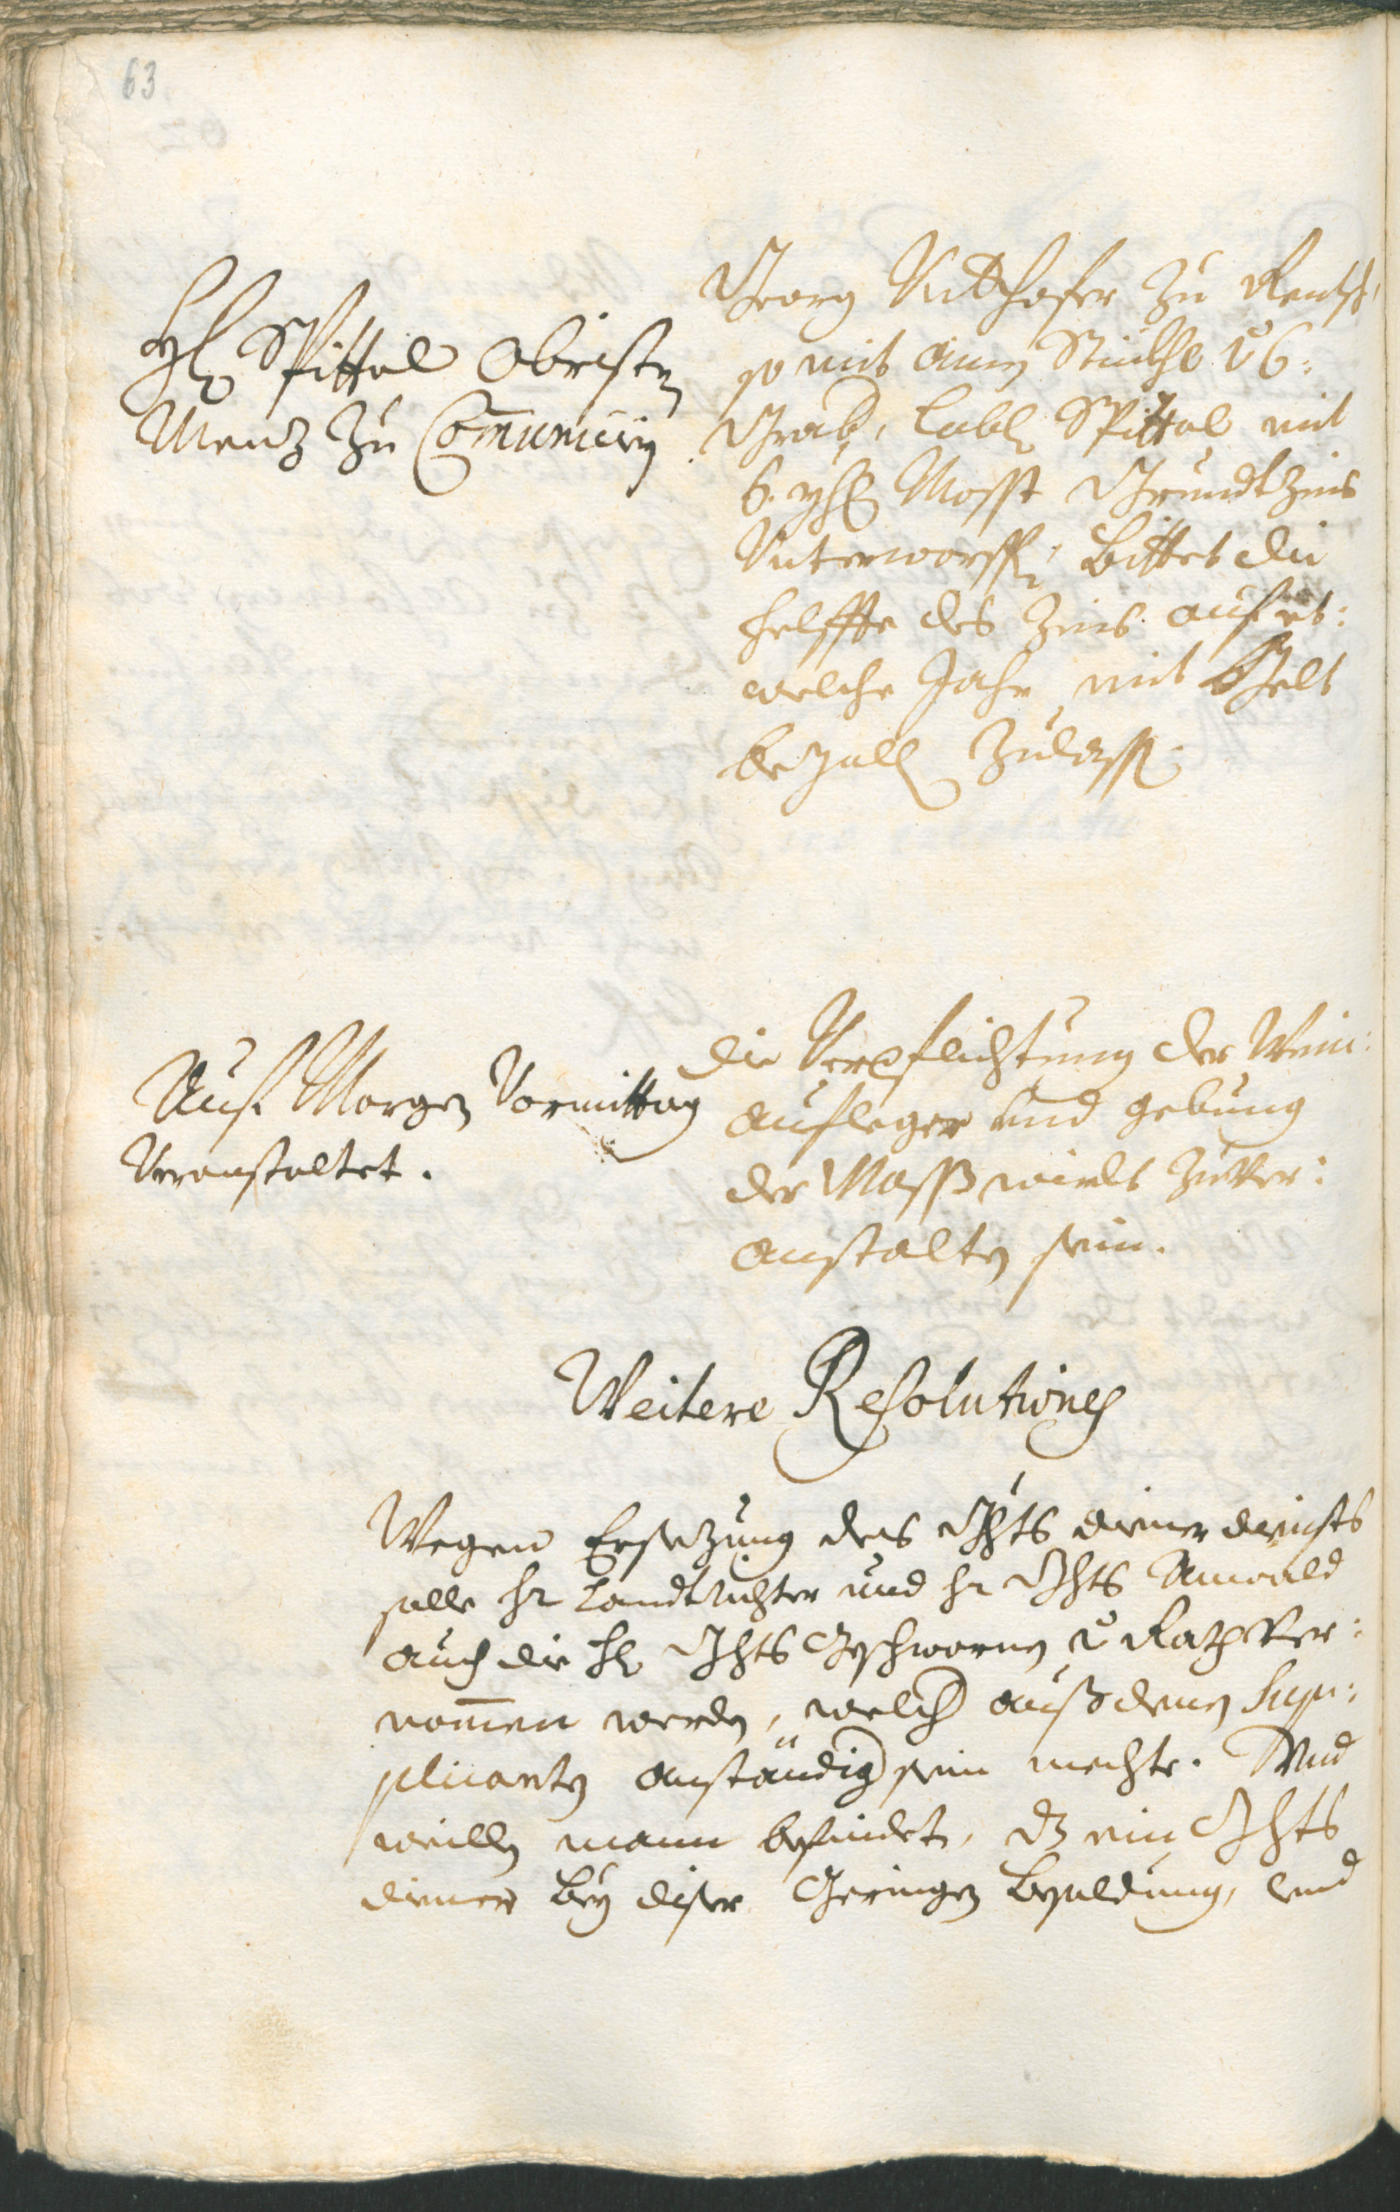 63
H: Spittal Obristen
Menz zu Com̄uniciren
Georg Ritthofer zu Rentsch
so mit ainem Stuckhl v 6:
Grab, Lobl: Spittal mit
6. yhr: Mosst Grundtzins
Vnterworffen, bittet die
helffte des Zins auf et:
welche Jahr mit Gelt
bezallen zulassen.
Auf Morgen Vormittag
Veranstaltet.
Die Verpflichtung der Wein:
aufleger und gebung
der Mass wirdt zuver:
anstalten sein.
Weitere Resolutiones
Wegen Ersezung des Ghts dienerdiensts
solle hr Landtrichter und hr Ghts Anwald
auch die H: Ghts Geschwornen v Räth ver:
nom̄en werden, welcher auß denen Sup:
plicanten anständig sein mechte. Vnd
weillen mann befindet, dz ein Ghts
diener bey diser Geringen Besoldung, und